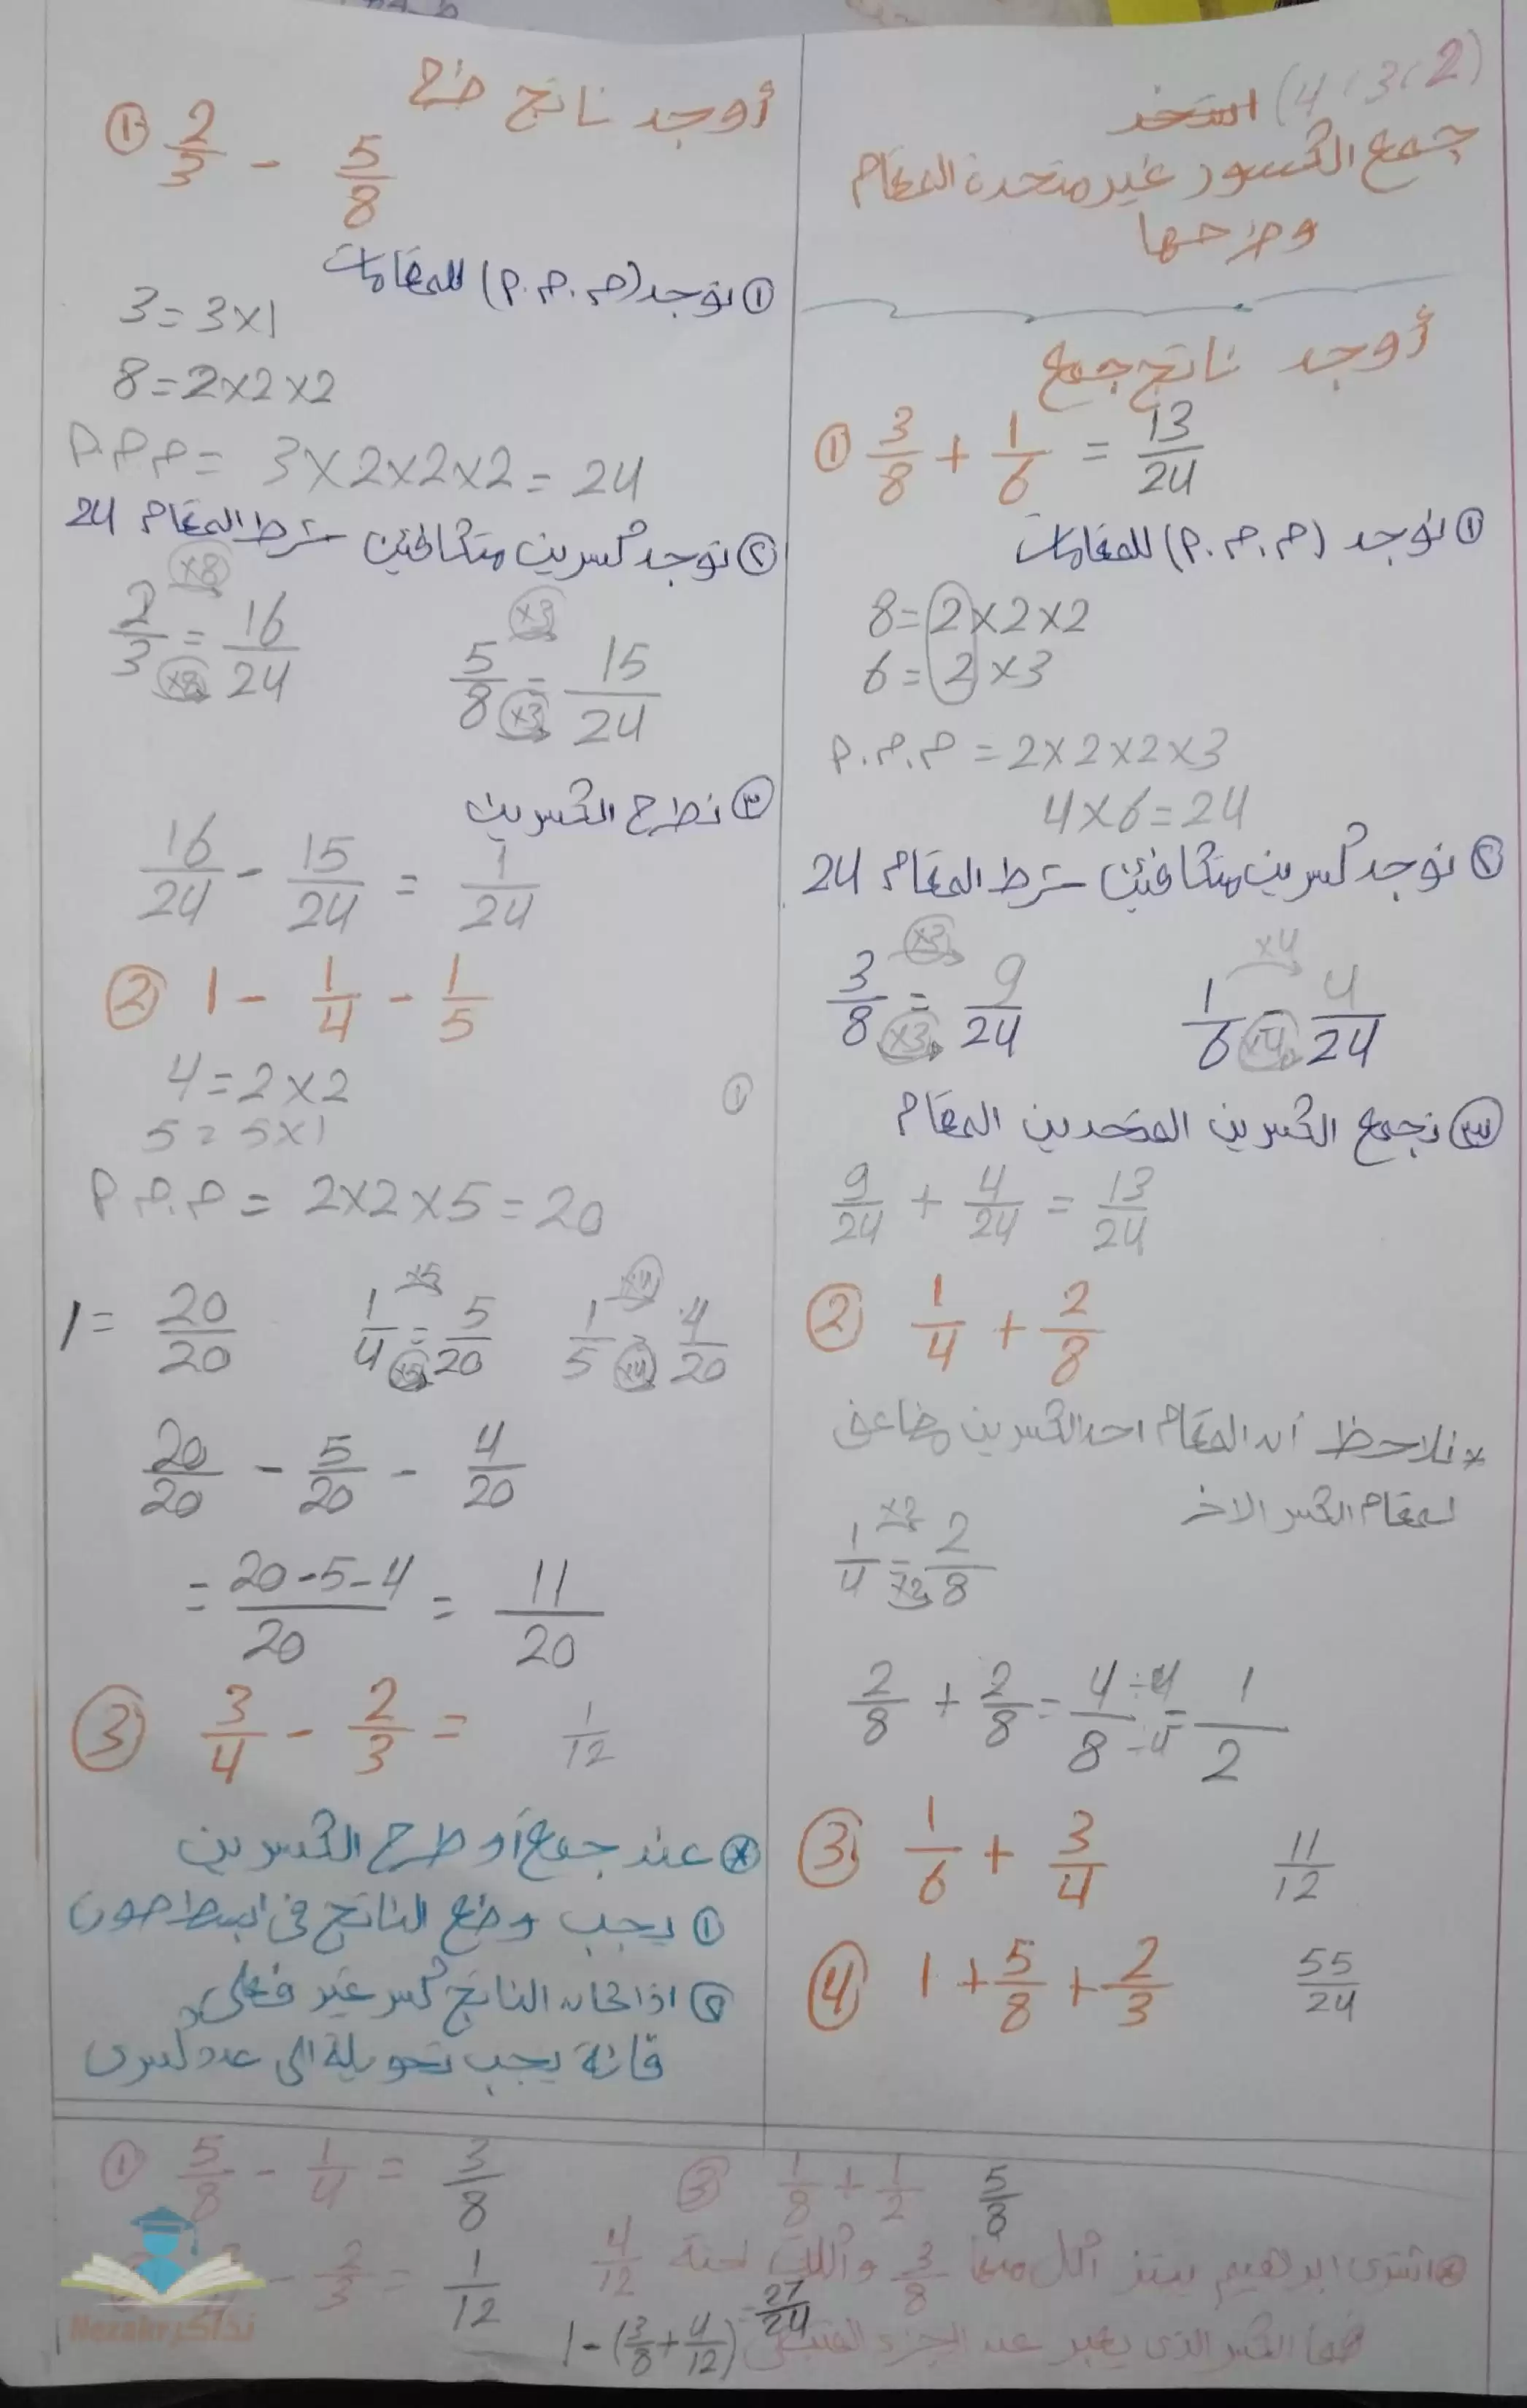 (4،3،2) استخد
جمع الكسور غير متحدة المقام
وطرحها
أوجد ناتج جمع
① 3/8 + 1/6 = 13/24
① نوجد (م.م.م) للمقامات
8=2×2×2
6=2×3
م.م.م =2×2×2×3
4×6=24
② نوجد كسرين متكافئين شرط المقام 24
3/8 = 9/24 ×3 ×3
1/6 = 4/24 ×4 ×4
③ نجمع الكسرين المتحدين المقام
9/24 + 4/24 = 13/24
② 1/4 + 2/8
* نلاحظ أن المقام احد الكسرين مضاعف
لمقام الكسر الاخر
1/4 = 2/8 ×2 ×2
2/8 + 2/8 = 4/8 ÷4 ÷4 = 1/2
③ 1/6 + 3/4 11/12
④ 1 + 5/8 + 2/3 55/24
أوجد ناتج طرح
① 2/3 - 5/8
① نوجد (م.م.م) للمقامات
3=3×1
8=2×2×2
م.م.م = 3×2×2×2=24
② نوجد كسرين متكافئين شرط المقام 24
2/3 = 16/24 ×8 ×8
5/8 = 15/24 ×3 ×3
③ نطرح الكسرين
16/24 - 15/24 = 1/24
② 1 - 1/4 - 1/5
4=2×2
①
5=5×1
م.م.م = 2×2×5=20
1 = 20/20 1/4 = 5/20 ×5 ×5 1/5 = 4/20 ×4 ×4
20/20 - 5/20 - 4/20
= 20-5-4/20 = 11/20
③ 3/4 - 2/3 = 1/12
* عند جمع أو طرح الكسرين
① يجب وضع الناتج فى ابسط صورة
② اذا كان الناتج كسر غير فعلى
فانة يجب تحويلة الى عدد كسرى
① 5/8 - 1/4 = 3/8
③ 1/8 + 1/2 5/8
- 2/3 = 1/12
اشترى ابراهيم بيتز اكل منها 3/8 و اكلت 4/12
فما الكسر الذى يعبر عند الجزء المتبقى
1-(3/8 + 4/12) = 27/24
نذاكر Nezakr